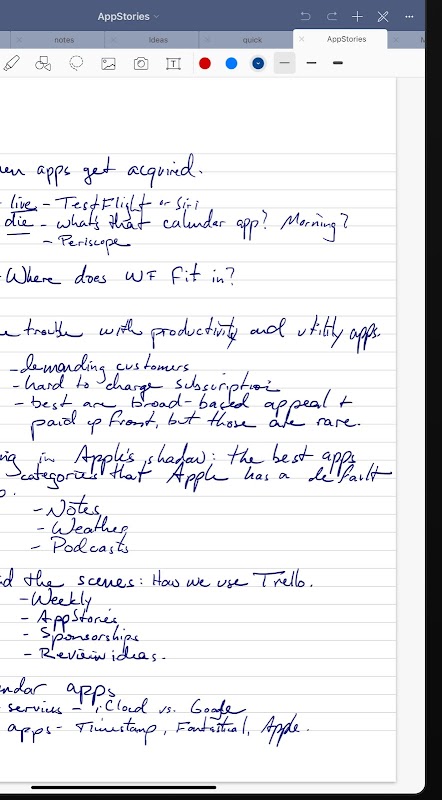 AppStories
notes Ideas quick AppStories
T
en apps get acquired.
live - TestFlight or Siri
die - whats that calendar app? Morning?
- Periscope
- Where does WF fit in?
e trouble with productivity and utility apps.
- demanding customers
- hard to charge subscription
- best are broad-based appeal +
paid up front, but those are rare.
ng in Apple's shadow: the best apps
categories that Apple has a default
- Notes
- Weather
- Podcasts
d the scenes: How we use Trello.
- Weekly
- AppStories
- Sponsorships
- Review ideas.
ndar apps
services - iCloud vs. Google
apps - Timestamp, Fantastical, Apple.